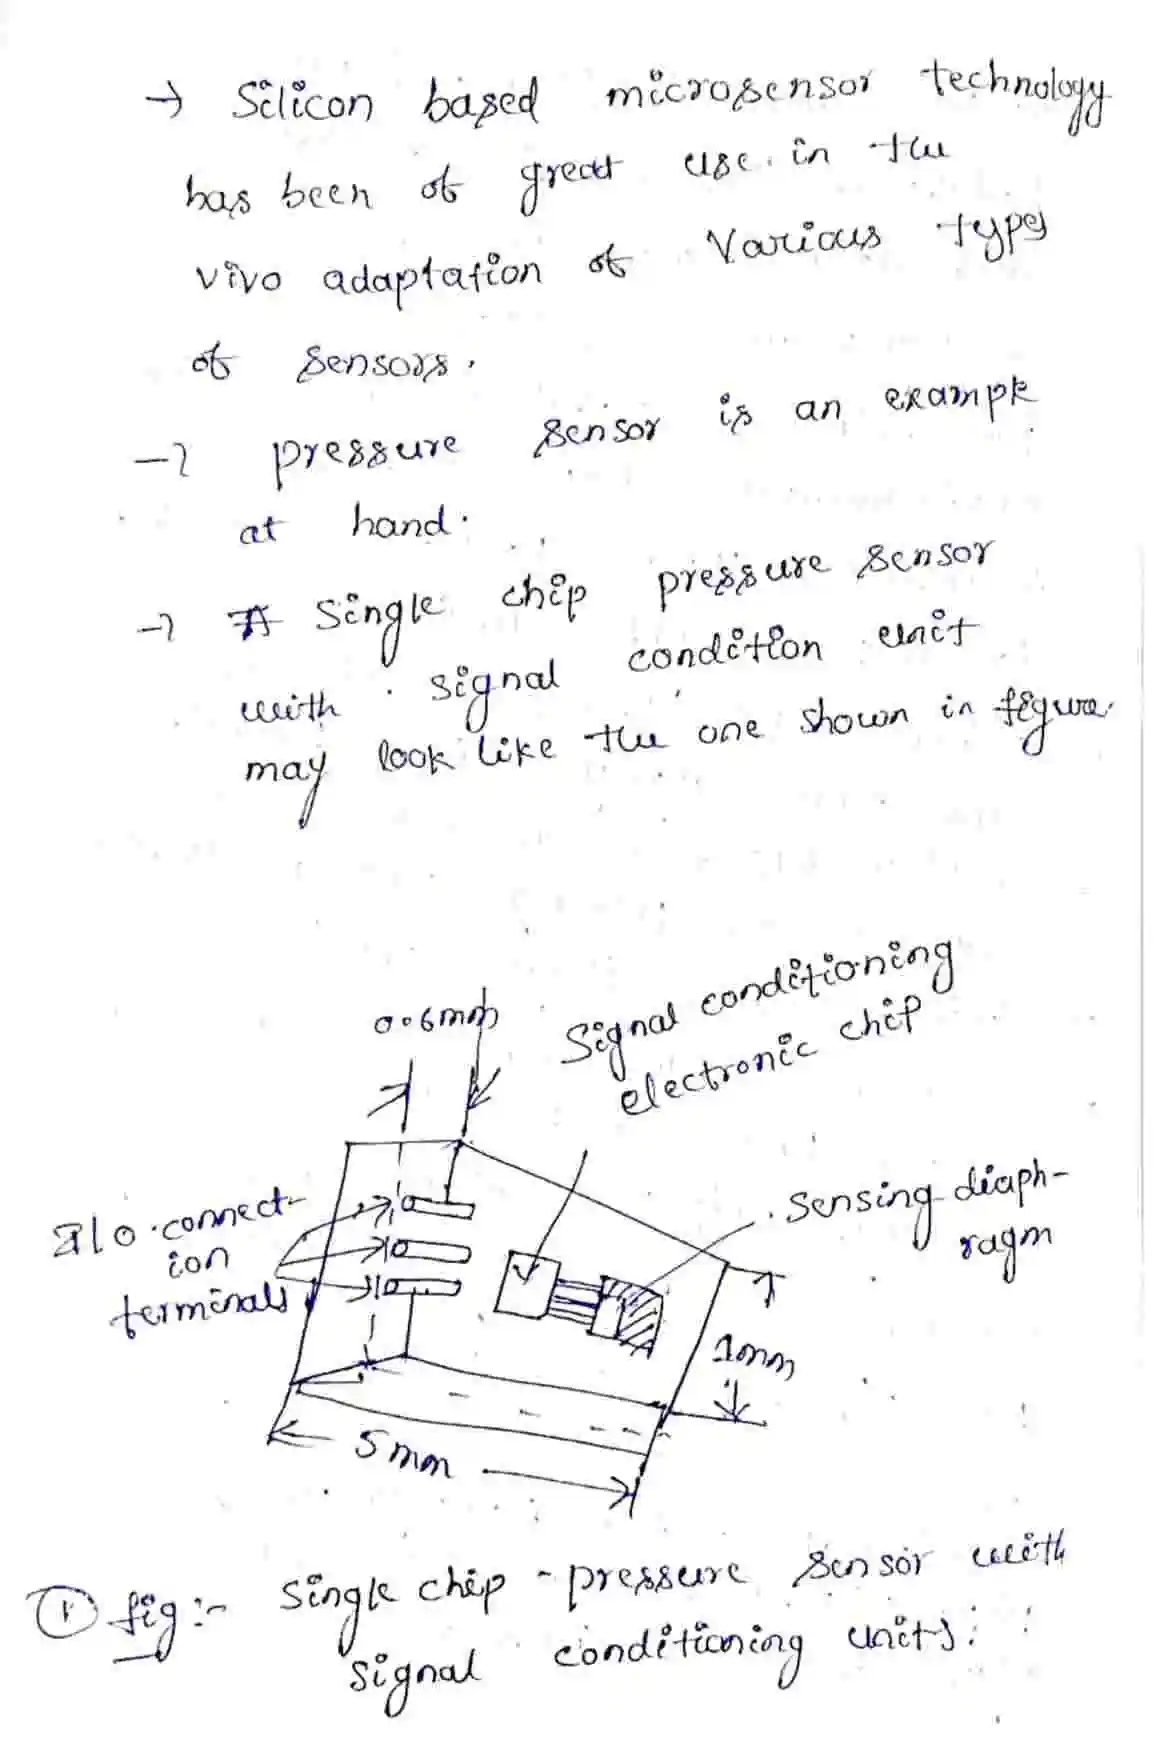 → Silicon based microsensor technology
has been of great use in the
vivo adaptation of Various types
of sensors.
→ pressure sensor is an example
at hand.
→ A single chip pressure sensor
with signal condition unit
may look like the one shown in figure.
0.6mm
Signal conditioning
electronic chip
Sensing diaph-
ragm
I/O connect-
ion
terminals
1mm
5mm
① fig:- Single chip - pressure sensor with
signal conditioning units.